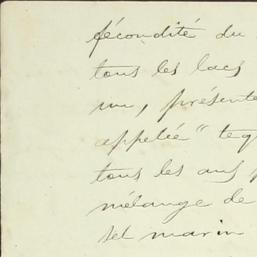 fécondité du
tous les lacs
un, présente
appelée "teq
tous les ans
mélange de
sel marin